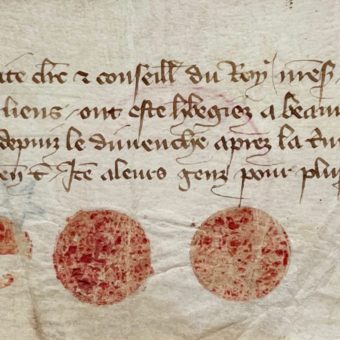 ite ch̅r & conseill̅ du Roy, mess
liens, ont este h̅begiez a beau
depuis le dimenche aprez la
en t̅. Jt̅e a leurs genz pour plu